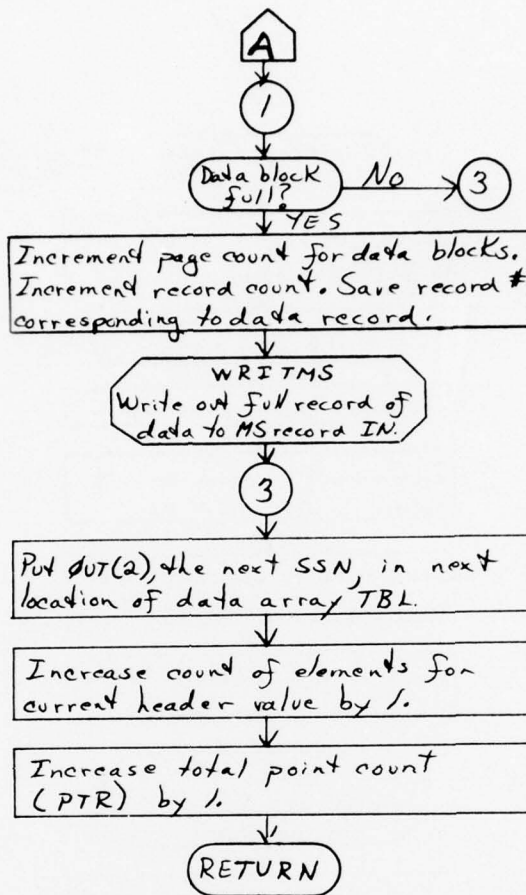 A
1
Data block
full?
No
3
YES
Increment page count for data blocks.
Increment record count. Save record #
corresponding to data record.
WRITMS
Write out full record of
data to MS record IN.
3
Put ØUT(2), the next SSN, in next
location of data array TBL.
Increase count of elements for
current header value by 1.
Increase total point count
(PTR) by 1.
RETURN